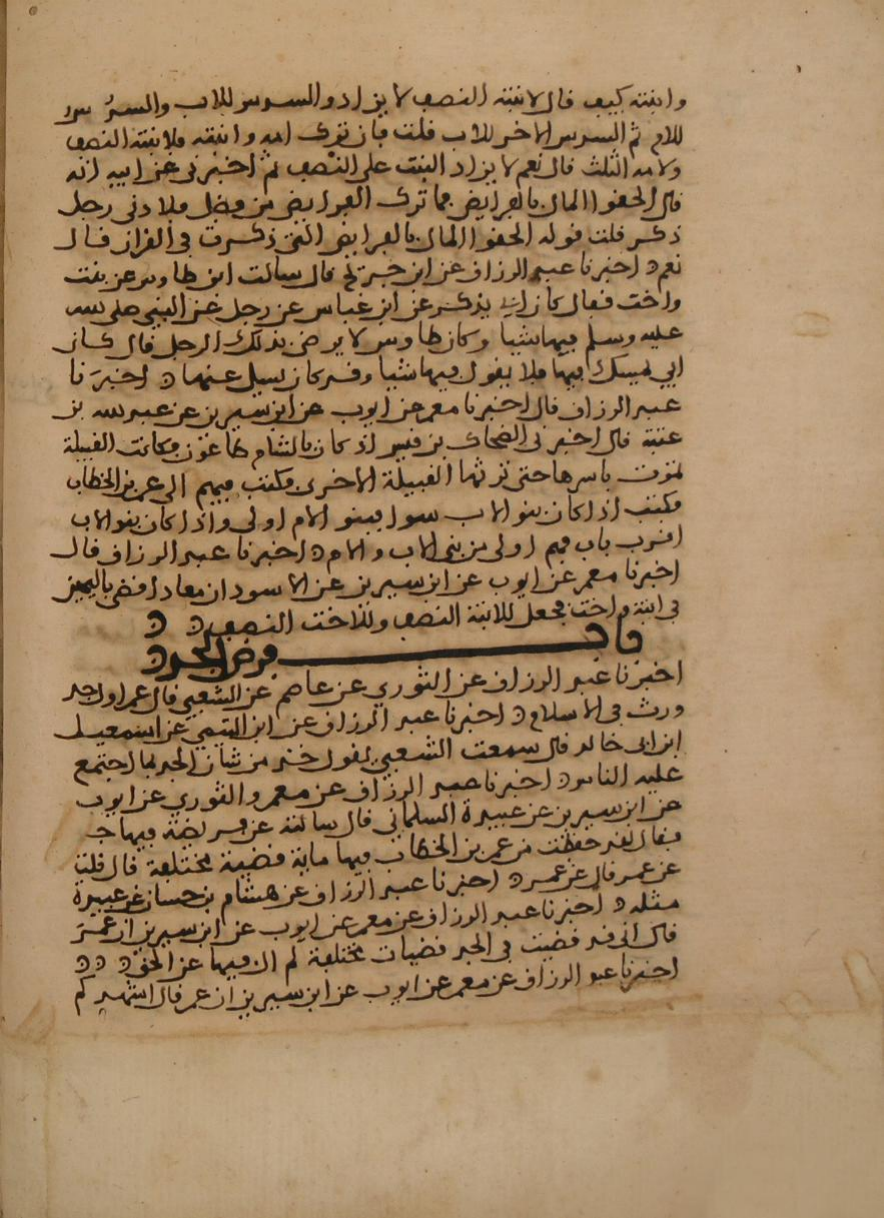 وابنته كيف قال لابنته النصف لا يزاد والسدس للاب والسدس
للام ثم السدس الاخر للاب قلت فان ترك امه وابنته فلابنته النصف
ولامه الثلث قال نعم لا يزاد البنت على النصف ثم اخبرني عن ابيه انه
قال الحقوا المال بالفرايض فما ترك الفرايض من فضل فلادنى رجل
ذكر قلت قوله الحقوا المال بالفرايض التي ذكرت في القران قال
نعم اخبرنا عبد الرزاق عن ابن جريج قال سالت ابن طاوس عن بنت
واخت فقال كان ابي يذكر عن ابن عباس عن رجل عن النبي صلى الله
عليه وسلم فيها شيا وكان طاوس لا يرضى بذلك الرجل قال كان
ابي يمسك فيها فلا يقول فيها شيا وقد كان يسيل عنها اخبرنا
عبد الرزاق قال اخبرنا معمر عن ايوب عن ابن سيرين عن عبد الله بن
عتبة قال اخبرني الضحاك بن قيس اذ كان بالشام طاعون فكانت القبيلة
تموت باسرها حتى ترثها القبيلة الاخرى فكتب فيهم الى عمر بن الخطاب
فكتب اذا كان بنو الاب سوا فبنو الام اولى واذا كان بنو الاب
اقرب باب فهم اولى من بني الاب والام اخبرنا عبد الرزاق قال
اخبرنا معمر عن ايوب عن ابن سيرين عن الاسود ان معاذا قضى باليمن
في ابنة واخت فجعل للابنة النصف وللاخت النصف
باب فرض الجد
اخبرنا عبد الرزاق عن الثوري عن عاصم عن الشعبي قال عمر اول جد
ورث في الاسلام اخبرنا عبد الرزاق عن ابن التيمي عن اسمعيل
ابن ابي خالد قال سمعت الشعبي يقول خذ من شان الجد بما اجتمع
عليه الناس اخبرنا عبد الرزاق عن معمر والثوري عن ايوب
عن ابن سيرين عن عبيدة السلماني قال سالته عن فريضة فيها جد
فقال لقد حفظت من عمر بن الخطاب فيها ماية قضية مختلفة قال قلت
عن عمر قال عن عمر اخبرنا عبد الرزاق عن هشام بن حسان عن عبيدة
مثله اخبرنا عبد الرزاق عن معمر عن ايوب عن ابن سيرين ان عمر
قال اني قد قضيت في الجد قضيات مختلفة لم ال فيها عن الحق
اخبرنا عبد الرزاق عن معمر عن ايوب عن ابن سيرين ان عمر قال اشهدكم